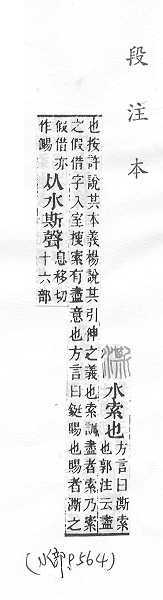 段注本
澌 水索也 方言曰澌索
也郭注云盡
也按許說其本義楊說其引伸之義也索訓盡者索乃索
之假借字入室搜索有盡意也方言曰鋌賜也賜者澌之
假借亦
作𧶽 从水斯聲 息移切
十六部
(水部P.564)